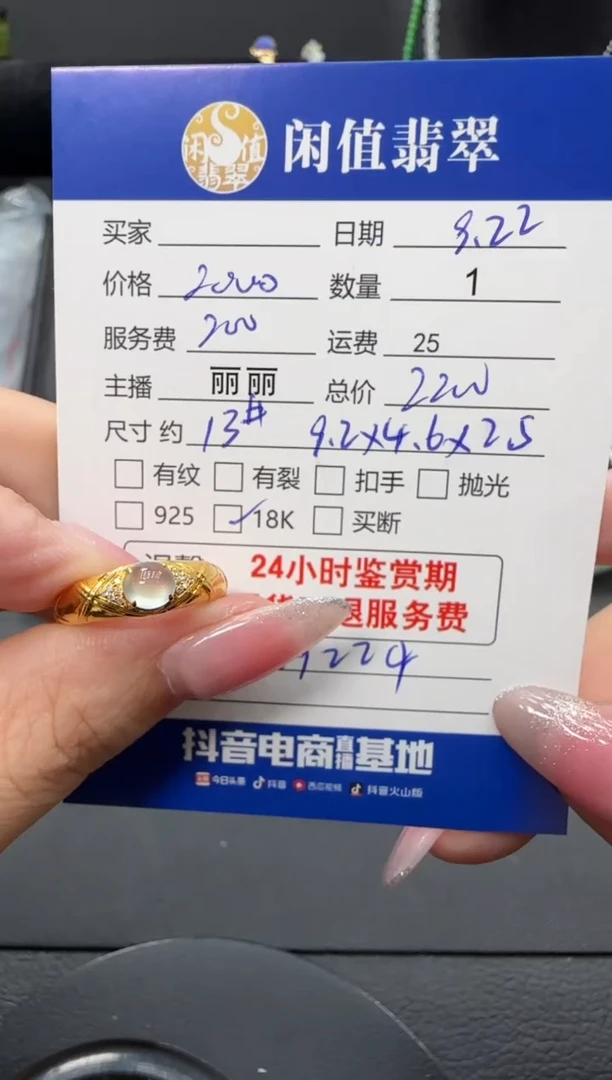 闲值翡翠
闲值翡翠
买家 日期 9.22
价格 2000 数量 1
服务费 200 运费 25
主播 丽丽 总价 2200
尺寸约 13# 9.2x4.6x2.5
有纹 有裂 扣手 抛光
925 18K 买断
24小时鉴赏期
退服务费
抖音电商直播基地
今日头条 抖音 西瓜视频 抖音火山版